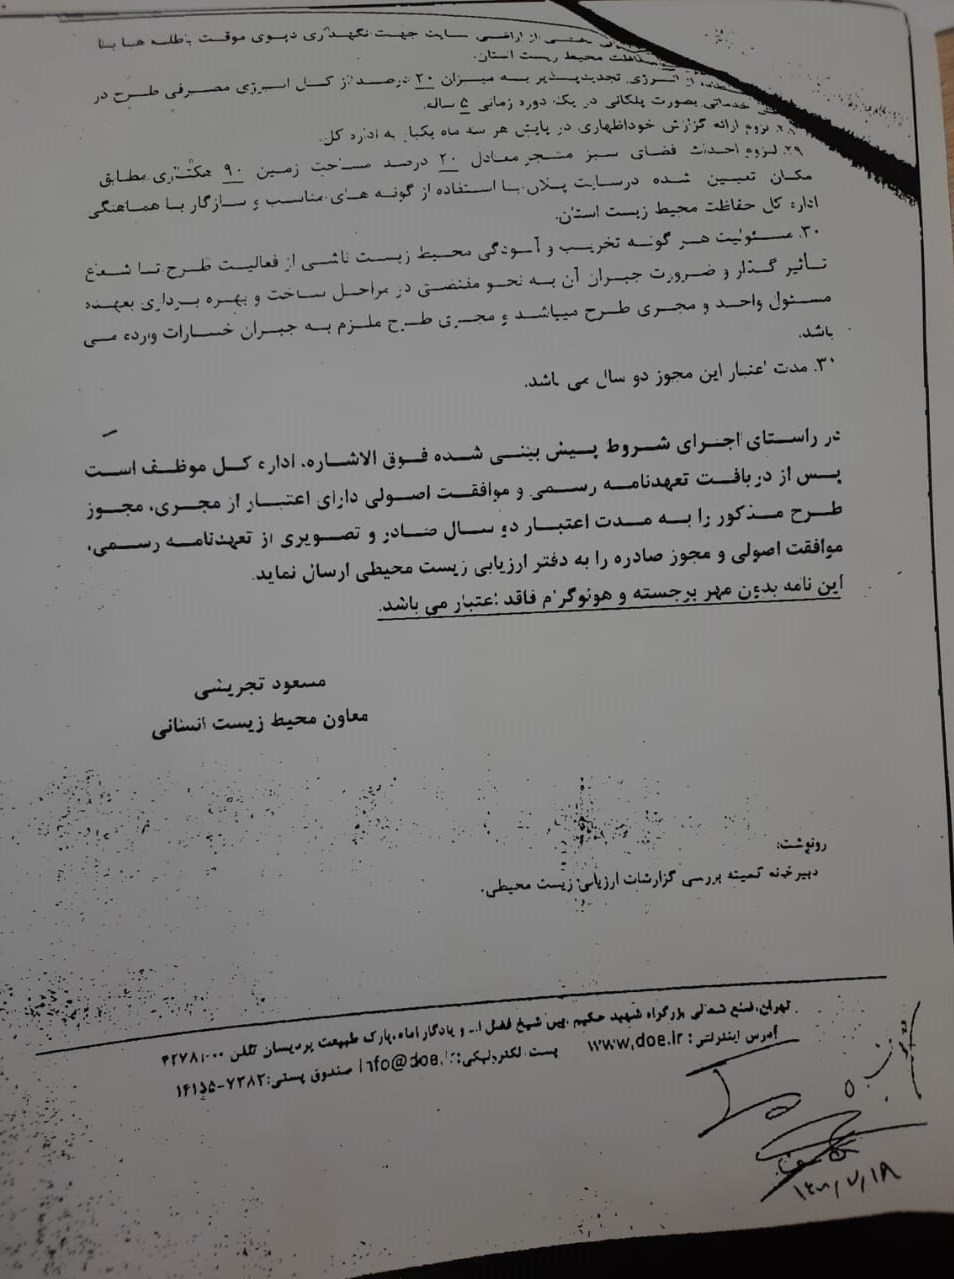 از اراضی سایت جهت نگهداری دپوی موقت باطله ها با
حفاظت محیط زیست استان.
از انرژی تجدیدپذیر به میزان ۲۰ درصد از کل انرژی مصرفی طرح در
خدماتی بصورت پلکانی در یک دوره زمانی ۵ ساله.
۲۸. لزوم ارائه گزارش خوداظهاری در پایش هر سه ماه یکبار به اداره کل.
۲۹. لزوم احداث فضای سبز مثجر معادل ۲۰ درصد مساحت زمین ۹۰ هکتاری مطابق
مکان تعیین شده درسایت پلان با استفاده از گونه های مناسب و سازگار با هماهنگی
اداره کل حفاظت محیط زیست استان.
۳۰. مسئولیت هر گونه تخریب و آلودگی محیط زیست ناشی از فعالیت طرح تا شعاع
تأثیر گذار و ضرورت جبران آن به نحو مقتضی در مراحل ساخت و بهره برداری بعهده
مسئول واحد و مجری طرح میباشد و مجری طرح ملزم به جبران خسارات وارده می
باشد.
۳۰. مدت اعتبار این مجوز دو سال می باشد.
در راستای اجرای شروط پیش بینی شده فوق الاشاره، اداره کل موظف است
پس از دریافت تعهدنامه رسمی و موافقت اصولی دارای اعتبار از مجری، مجوز
طرح مذکور را به مدت اعتبار دو سال صادر و تصویری از تعهدنامه رسمی،
موافقت اصولی و مجوز صادره را به دفتر ارزیابی زیست محیطی ارسال نماید.
این نامه بدون مهر برجسته و هولوگرام فاقد اعتبار می باشد.
مسعود تجریشی
معاون محیط زیست انسانی
رونوشت:
دبیرخانه کمیته بررسی گزارشات ارزیابی زیست محیطی.
تهران، ضلع شمالی بزرگراه شهید حکیم بین شیخ فضل ا... و یادگار امام، پارک طبیعت پردیسان تلفن ۴۲۷۸۱۰۰۰
آدرس اینترنتی: www.doe.ir پست الکترونیکی: info@doe.ir صندوق پستی: ۷۳۸۳-۱۴۱۵۵